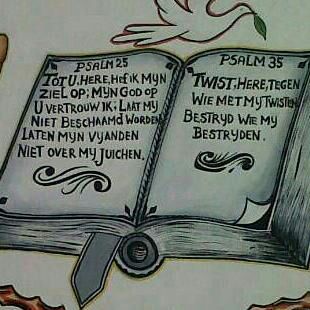 PSALM 25
TOT U, HERE, HEF IK MYN
ZIEL OP; MYN GOD OP
U VERTROUW IK; LAAT MY
NIET BESCHAAMD WORDEN
LATEN MYN VYANDEN
NIET OVER MY JUICHEN.
PSALM 35
TWIST, HERE, TEGEN
WIE MET MY TWISTEN
BESTRYD WIE MY
BESTRYDEN.